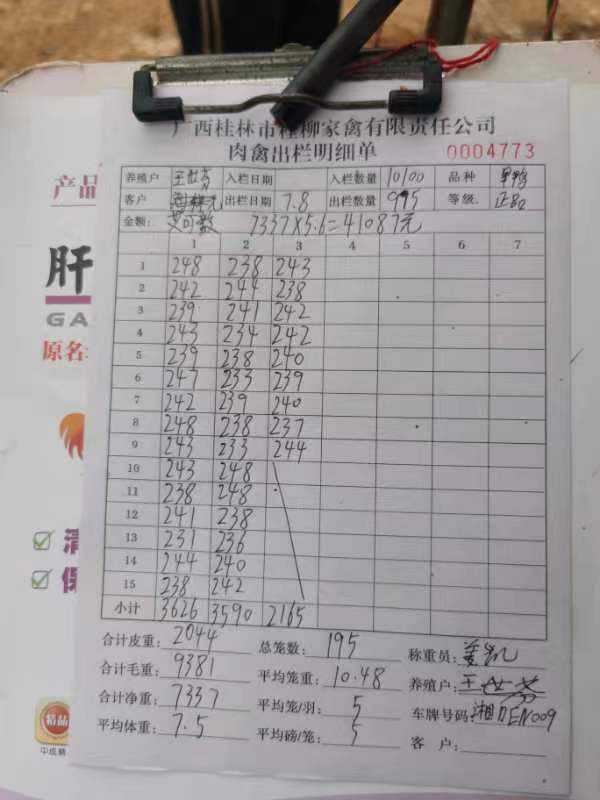 广西桂林市桂柳家禽有限责任公司
肉禽出栏明细单 0004773
养殖户 王世芬 入栏日期 入栏数量 10/00 品种
客户 出栏日期 7.8 出栏数量 995 等级 正品
金额: 7337×5.6=41087元
1 2 3 4 5 6 7
1 248 238 243
2 242 244 238
3 239 241 242
4 243 234 242
5 239 238 240
6 247 233 239
7 242 239 240
8 248 238 237
9 243 233 244
10 243 248
11 238 248
12 241 238
13 231 236
14 244 240
15 238 242
小计 3626 3590 2165
合计皮重: 2044 总笼数: 195 称重员: 姜凯
合计毛重: 9381 平均笼重: 10.48 养殖户: 王世芬
合计净重: 7337 平均笼/羽: 5 车牌号码: 湘DEN009
平均体重: 7.5 平均磅/笼: 5 客 户:
产品
肝
GA
原名:
清
保
精品
中成药